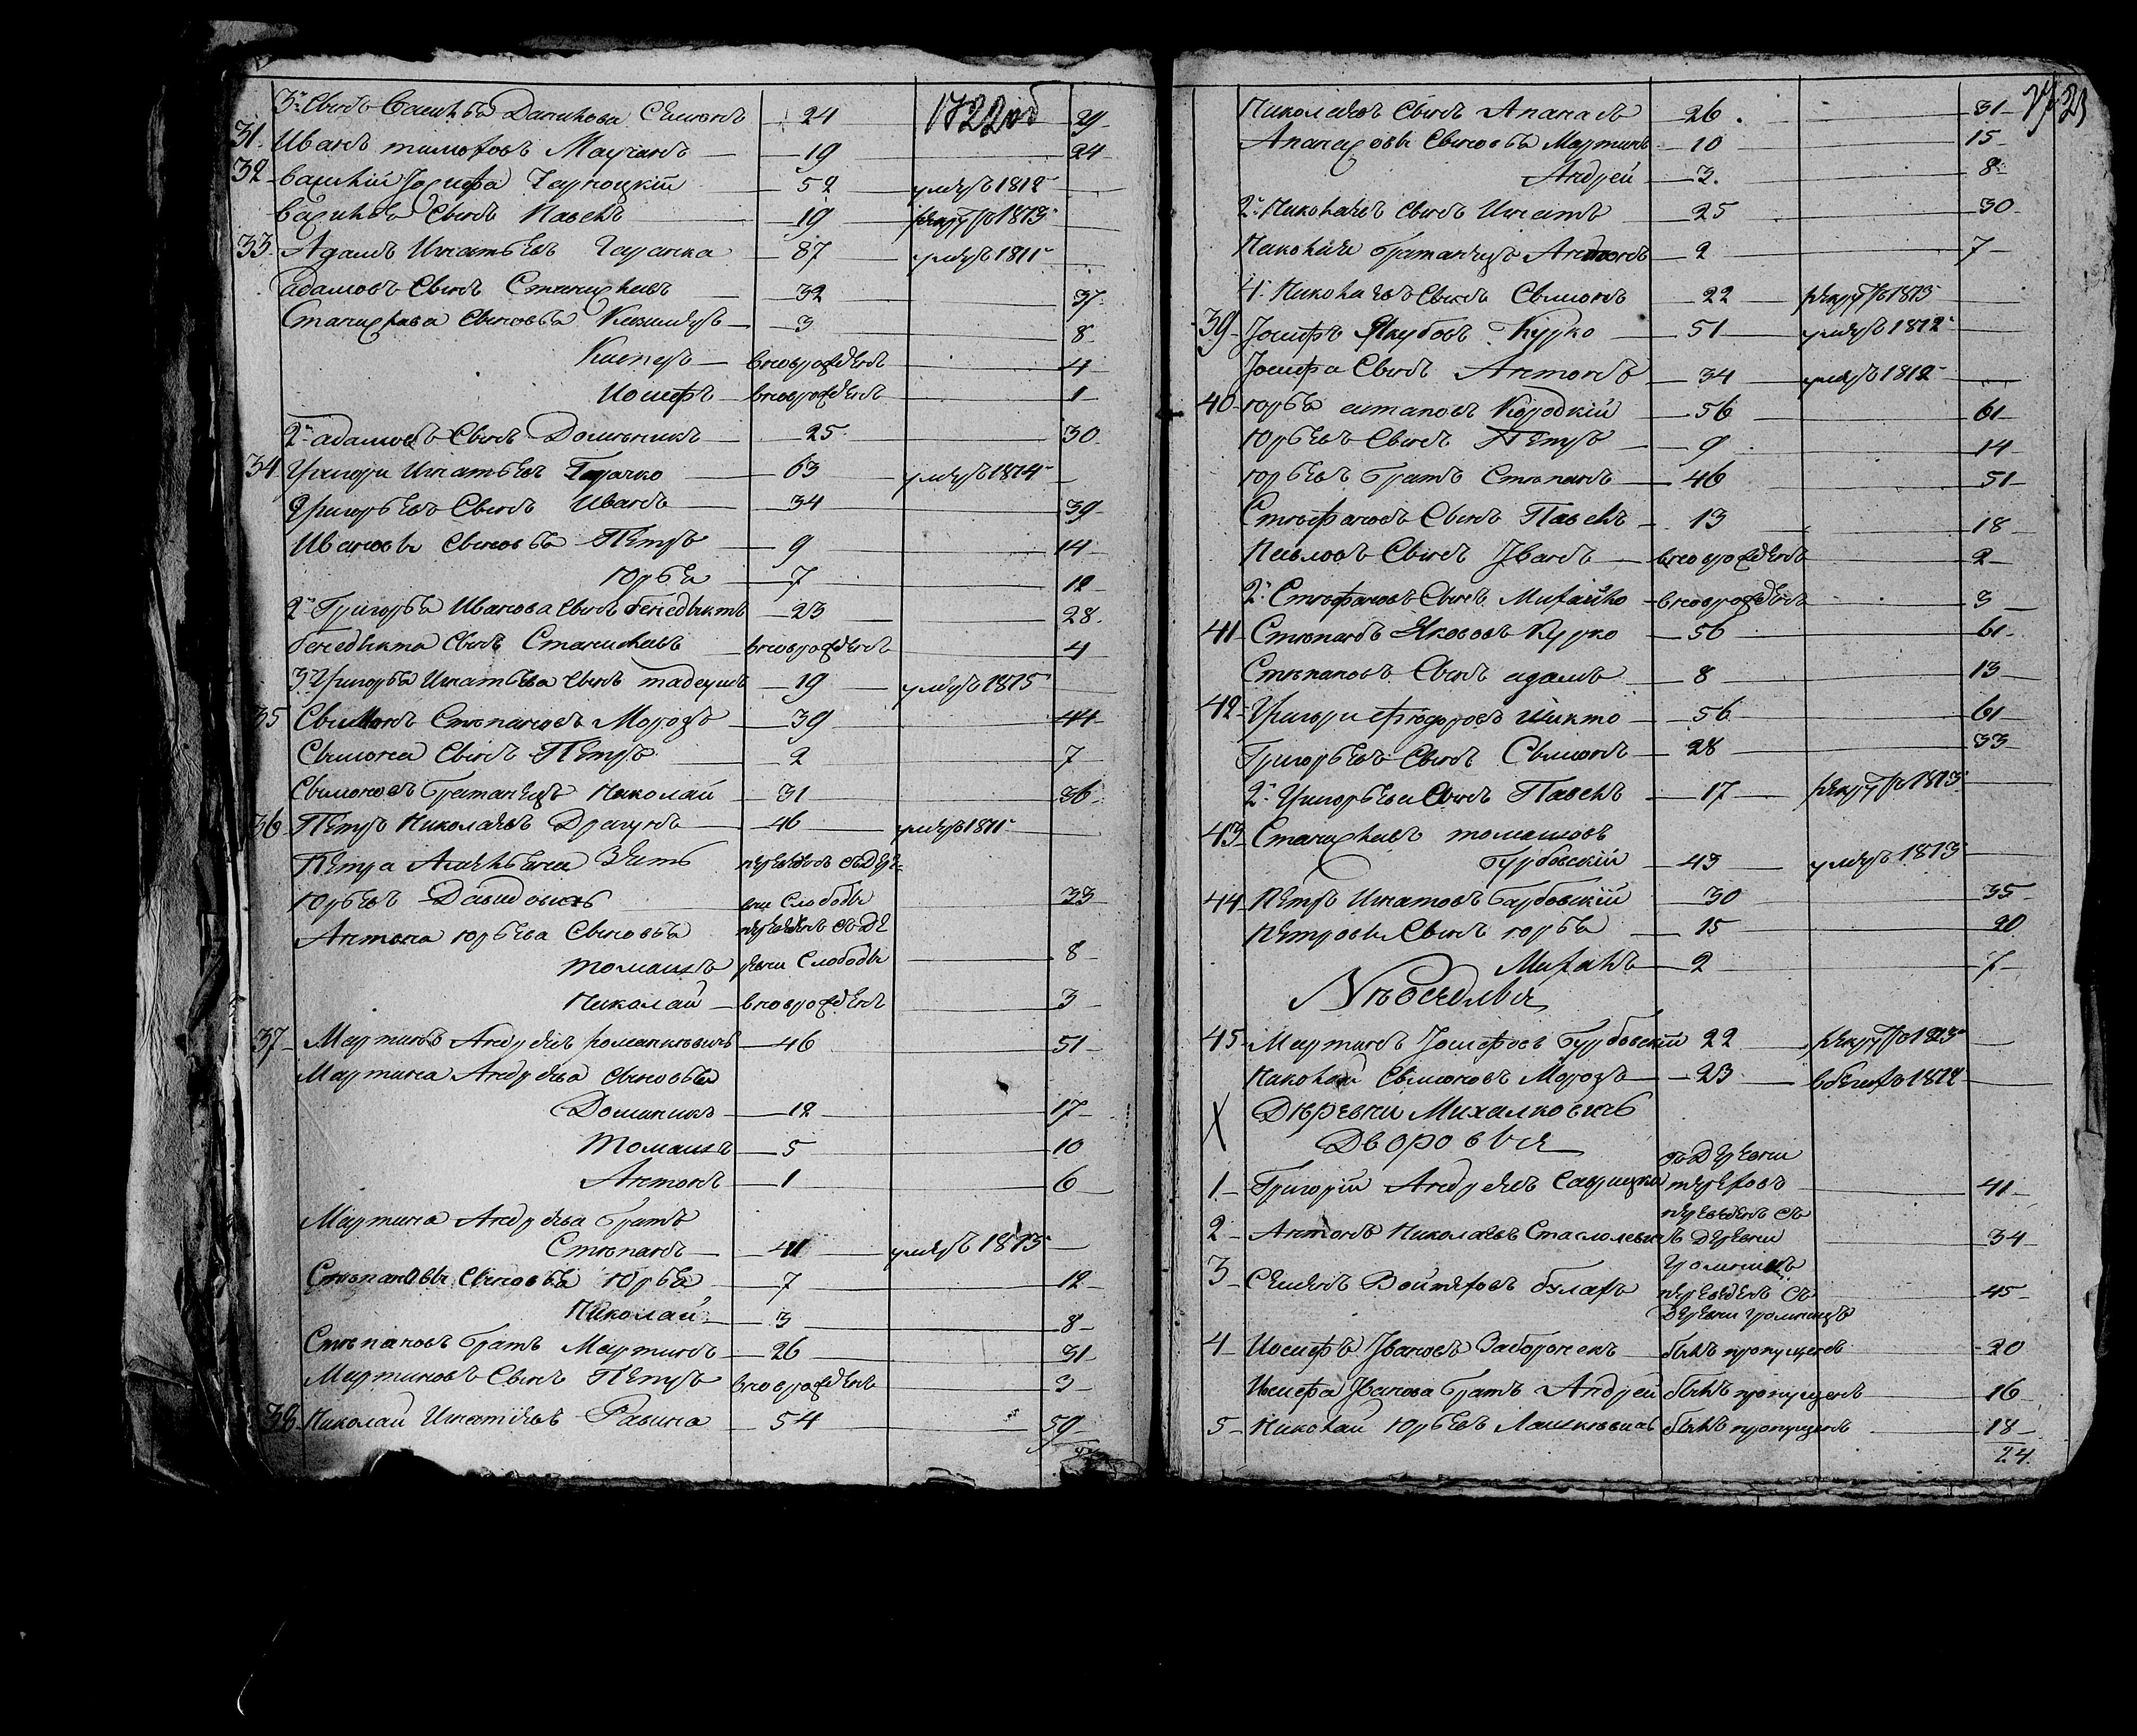 3й Сынъ Василья Данилова Симонъ 24 29
1722 об
31. Иванъ тимофовъ Маучанъ 19 24
32 василій Iосифа Чарноцкій 52 умеръ 1812
василья Сынъ Павелъ 19 рекрут 1813
33. Адамъ Игнатьевъ Гарачка 87 умеръ 1811
адамовъ Сынъ Станиславъ 32 37
Станислава Сыновья Казимеръ 3 8
Касперъ вновророжденъ 4
Иосифъ вноврожденъ 1
2й адамовъ Сынъ Доминикъ 25 30
34 Григори Игнатьевъ Горачко 63 умеръ 1814
Григорьевъ Сынъ Иванъ 34 39
Ивановы Сыновья Петръ 9 14
Юрья 7 12
2й Григорья Иванова Сынъ бенедыктъ 23 28
бенедыкта Сынъ Станиславъ вноврожденъ 4
3й Григорья Игнатьева Сынъ тадеушъ 19 умеръ 1815
35 Сымонъ Степановъ Морозъ 39 44
Сымона Сынъ Петръ 2 7
Сымоновъ братанецъ Николай 31 36
36 Петръ Николаевъ Драгунъ 46 умеръ 1811
Петра Зять переведенъ съ дере-
Юрьевъ Давидовичъ вни Слободы 33
Антона юрьева Сыновья переведенъ съ де
томашъ ревни Слободы 8
Николай вноврожденъ 3
37 Мартинъ Андреевъ романкевичъ 46 51
Мартина Андреева Сыновья
Доминикъ 12 17
Томашъ 5 10
Антонъ 1 6
Мартина Андреева братъ
Степанъ 41 умеръ 1813
Степановы Сыновья Юрья 7 12
Николай 3 8
Степановъ братъ Мартинъ 26 31
Мартиновъ Сынъ Петръ вноврожденъ 3
38 Николай Игнатевъ Равина 54 59
Николаевъ Сынъ Апанасъ 26 31
Апанасовы Сыновья Мартинъ 10 15
Андрей 3 8
2й Николаевъ Сынъ Игнатъ 25 30
Николая братанецъ Антонъ 2 7
4й Николаевъ Сынъ Сымонъ 22 рекрут 1813
39 Iосифъ Якубовъ Курко 51 умеръ 1812
Iосифа Сынъ Антонъ 34 умеръ 1812
40 Юрья Кородкій 56 61
Юрьевъ Сынъ Петръ 9 14
Юрьевъ братъ Степанъ 46 51
Стефановъ Сынъ Павелъ 13 18
Павловъ Сынъ Iванъ вноврожденъ 2
2й Стефановъ Сынъ Михайло вноврожденъ 3
41 Степанъ Якововъ Курко 56 61
Степановъ Сынъ адамъ 8 13
42 Григори Фюдоровъ Шикто 56 61
Григорьевъ Сынъ Сымонъ 28 33
2й Григорьева Сынъ Павелъ 17 рекрут 1813
43 Станиславъ томашовъ
Бурбовскій 43 умеръ 1813
44 Петръ Игнатовъ барбовскій 30 35
Петровы Сынъ юрья 15 20
Михалъ 2 7
Мартинъ Iосифовъ бурбовскій 22 рекрут 1813
45
Николай Сымоновъ Морозъ 23 вбегахъ 1812
X Деревни Михалковичъ
Дворовыя
съ деревни
1 Григорій Андреевъ Савицкій терехов 41
переведенъ съ
2 Антонъ Николаевъ деревни 34
громницъ
3 Семенъ Войтеховъ булахъ переведенъ съ 45
деревни громницъ
4 Иосифъ Iвановъ Заборонекъ былъ пропущенъ 20
Иосифа Iванова братъ Андрей былъ пропущенъ 16
5 Николай Юрьевъ Лашкевичъ былъ пропущенъ 18
24